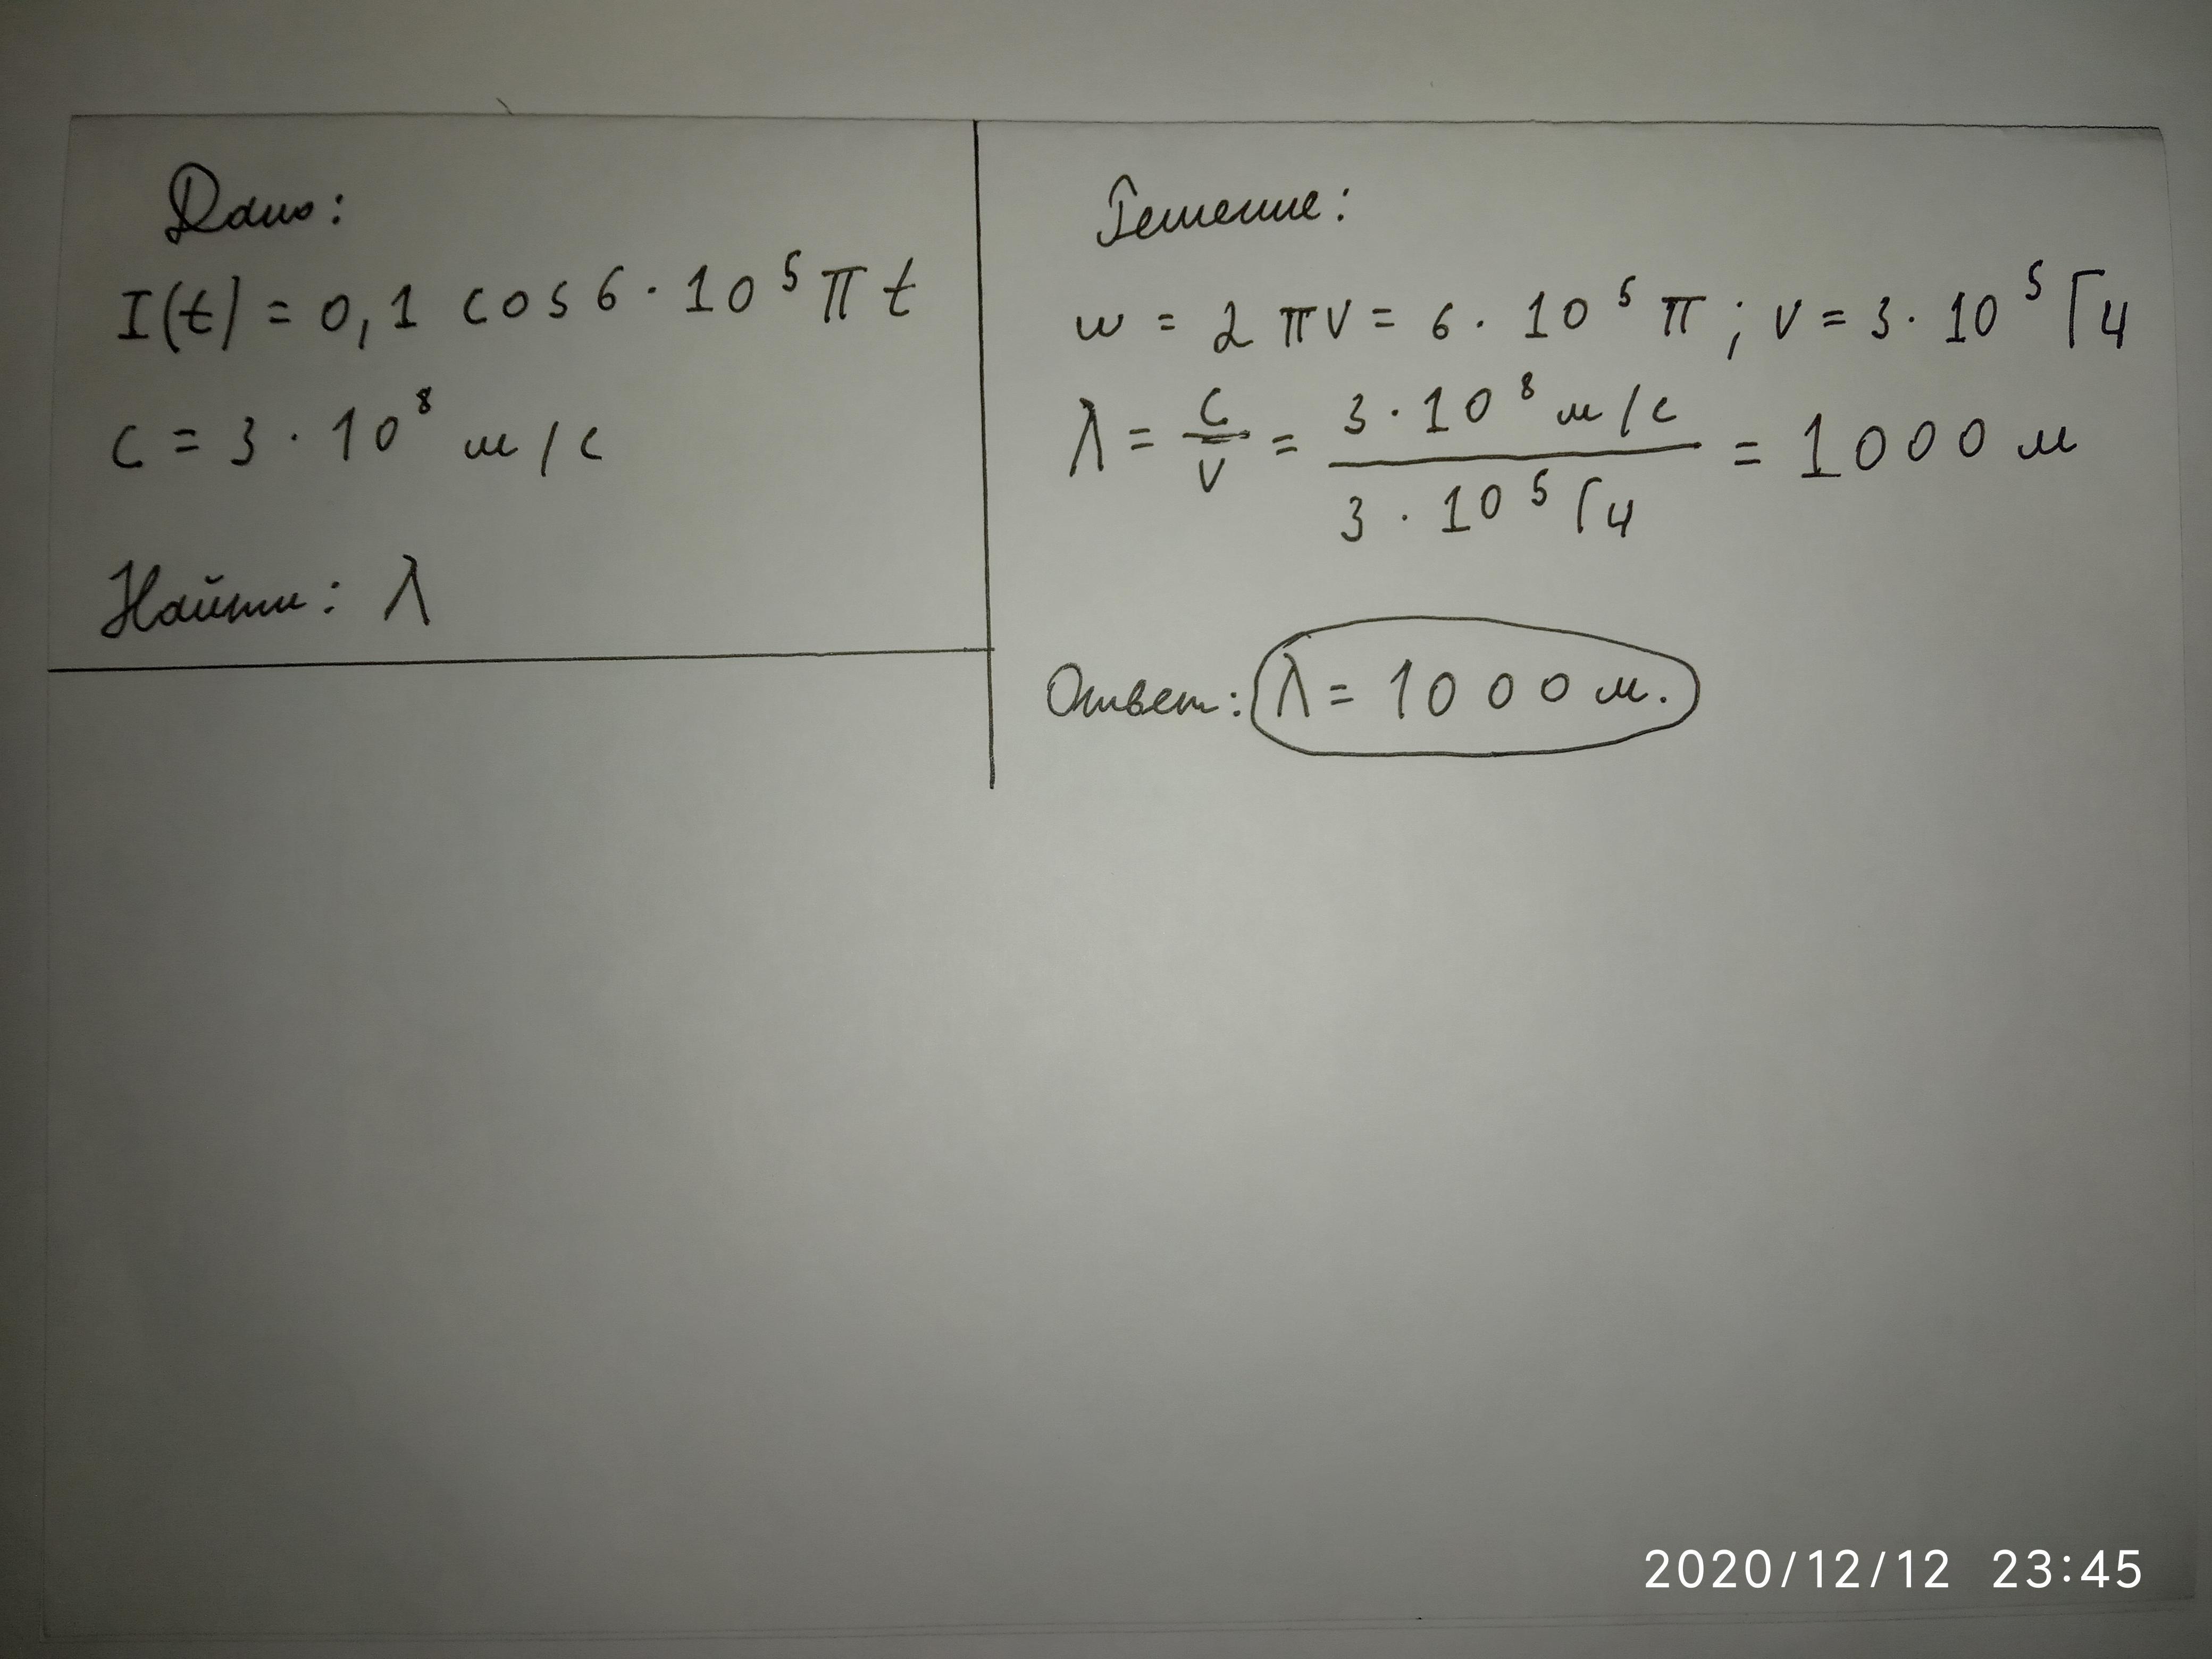 Дано:
I(t) = 0,1 cos 6 · 10⁵ π t
c = 3 · 10⁸ м/с
Найти: λ
Решение:
w = 2πν = 6 · 10⁵ π ; ν = 3 · 10⁵ Гц
λ = c/ν = 3 · 10⁸ м/с / 3 · 10⁵ Гц = 1000 м
Ответ: λ = 1000 м.
2020/12/12 23:45